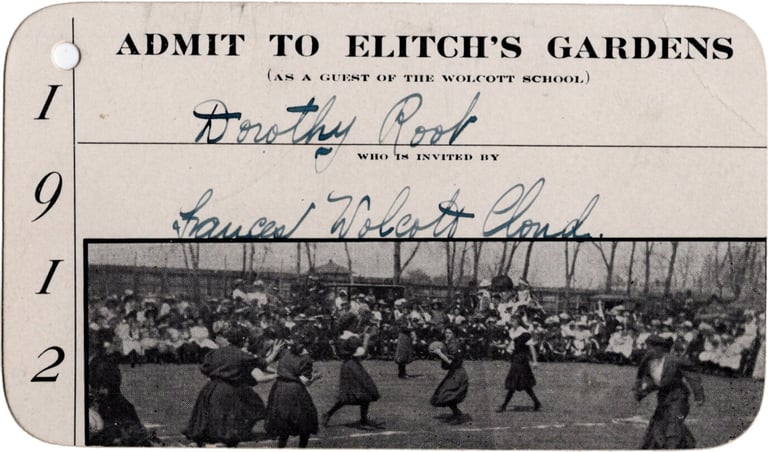 ADMIT TO ELITCH'S GARDENS
(AS A GUEST OF THE WOLCOTT SCHOOL)
Dorothy Root
WHO IS INVITED BY
Frances Wolcott Cloud.
1912